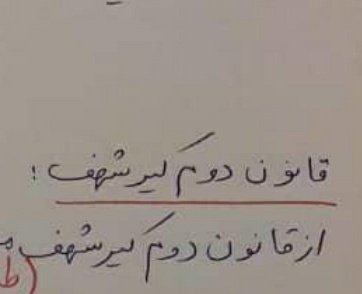 قانون دوم کیرشهف :
از قانون دوم کیرشهف